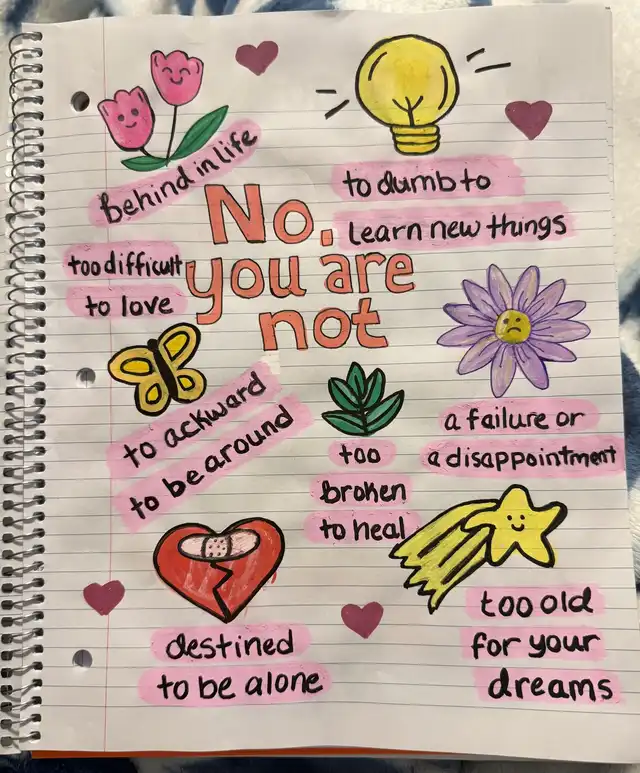 No,
you are
not
behind in life
to dumb to
learn new things
too difficult
to love
a failure or
a disappointment
to ackward
to be around
too
broken
to heal
destined
to be alone
too old
for your
dreams